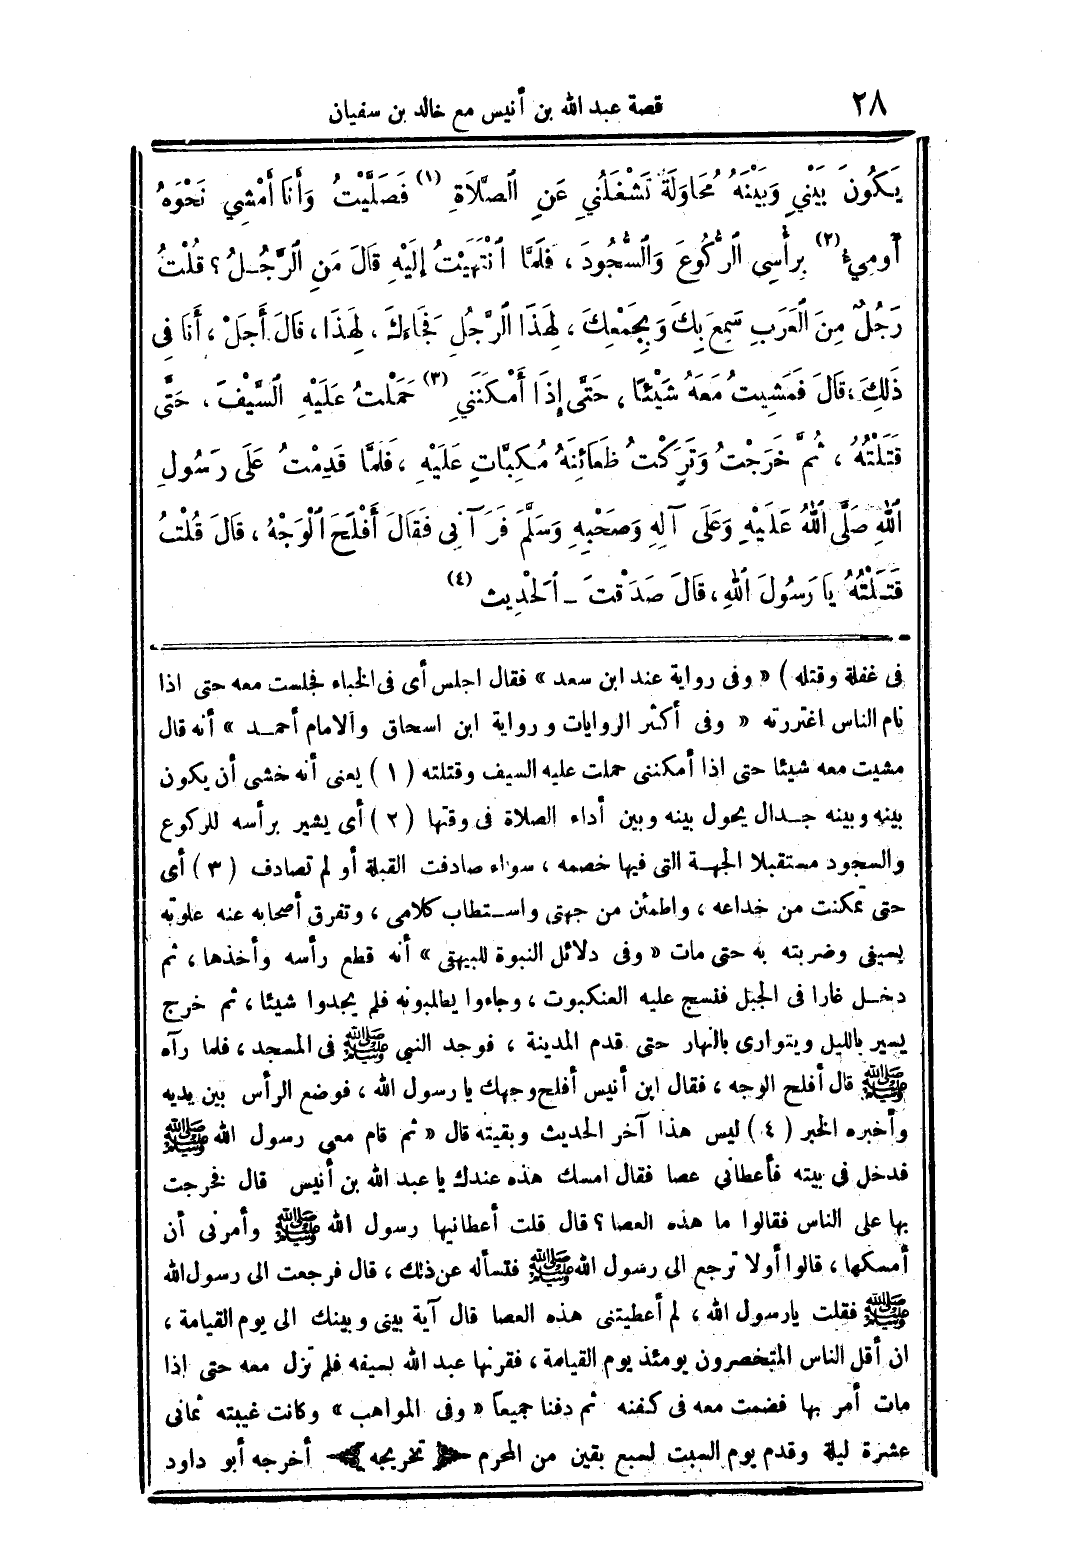 ٢٨ قصة عبد الله بن أنيس مع خالد بن سفيان
يَكُونَ بَيْنِي وَبَيْنَهُ مُحَاوَلَةٌ تَشْغَلُنِي عَنِ الصَّلَاةِ (١) فَصَلَّيْتُ وَأَنَا أَمْشِي نَحْوَهُ
أُومِيءُ (٢) بِرَأْسِي الرُّكُوعَ وَالسُّجُودَ ، فَلَمَّا انْتَهَيْتُ إِلَيْهِ قَالَ مَنِ الرَّجُلُ ؟ قُلْتُ
رَجُلٌ مِنَ الْعَرَبِ سَمِعَ بِكَ وَبِجَمْعِكَ ، لِهَذَا الرَّجُلِ فَجَاءَكَ ، لِهَذَا ، قَالَ أَجَلْ ، أَنَا فِى
ذَلِكَ ، قَالَ فَمَشِيتُ مَعَهُ شَيْئًا ، حَتَّى إِذَا أَمْكَنَنِي (٣) حَمَلْتُ عَلَيْهِ السَّيْفَ ، حَتَّى
قَتَلْتُهُ ، ثُمَّ خَرَجْتُ وَتَرَكْتُ ظَعَائِنَهُ مُكِبَّاتٍ عَلَيْهِ ، فَلَمَّا قَدِمْتُ عَلَى رَسُولِ
اللهِ صَلَّى اللهُ عَلَيْهِ وَعَلَى آلِهِ وَصَحْبِهِ وَسَلَّمَ فَرَآنِى فَقَالَ أَفْلَحَ الْوَجْهُ ، قَالَ قُلْتُ
قَتَلْتُهُ يَا رَسُولَ اللهِ ، قَالَ صَدَقْتَ ــ اَلْحَدِيث (٤)
فى غفلة وقتله ) « وفى رواية عند ابن سعد » فقال اجلس أى فى الخباء فجلست معه حتى اذا
نام الناس اغتررته « وفى أكثر الروايات ورواية ابن اسحاق والامام أحمد » أنه قال
مشيت معه شيئا حتى اذا أمكننى حملت عليه السيف وقتلته (١) يعنى أنه خشى أن يكون
بينه وبينه جدال يحول بينه وبين أداء الصلاة فى وقتها (٢) أى يشير برأسه للركوع
والسجود مستقبلا الجهة التى فيها خصمه ، سواء صادفت القبلة أو لم تصادف (٣) أى
حتى تمكنت من خداعه ، واطمئن من جهتى واستطاب كلامى ، وتفرق أصحابه عنه علوته
بسيفى وضربته به حتى مات « وفى دلائل النبوة للبيهقى » أنه قطع رأسه وأخذها ، ثم
دخل غارا فى الجبل فنسج عليه العنكبوت ، وجاءوا يطلبونه فلم يجدوا شيئا ، ثم خرج
يسير بالليل ويتوارى بالنهار حتى قدم المدينة ، فوجد النبي ﷺ فى المسجد ، فلما رآه
ﷺ قال أفلح الوجه ، فقال ابن أنيس أفلح وجهك يا رسول الله ، فوضع الرأس بين يديه
وأخبره الخبر (٤) ليس هذا آخر الحديث وبقيته قال « ثم قام معي رسول الله ﷺ
فدخل فى بيته فأعطاني عصا فقال امسك هذه عندك يا عبد الله بن أنيس قال فخرجت
بها على الناس فقالوا ما هذه العصا ؟ قال قلت أعطانيها رسول الله ﷺ وأمرنى أن
أمسكها ، قالوا أولا ترجع الى رسول الله ﷺ فتسأله عن ذلك ، قال فرجعت الى رسول الله
ﷺ فقلت يارسول الله ، لم أعطيتنى هذه العصا قال آية بينى وبينك الى يوم القيامة ،
ان أقل الناس المتخصرون يومئذ يوم القيامة ، فقرنها عبد الله بسيفه فلم تزل معه حتى اذا
مات أمر بها فضمت معه فى كفنه ثم دفنا جميعاً « وفى المواهب » وكانت غيبته ثمانى
عشرة ليلة وقدم يوم السبت لسبع بقين من المحرم ﴿ تخريجه ﴾ أخرجه أبو داود